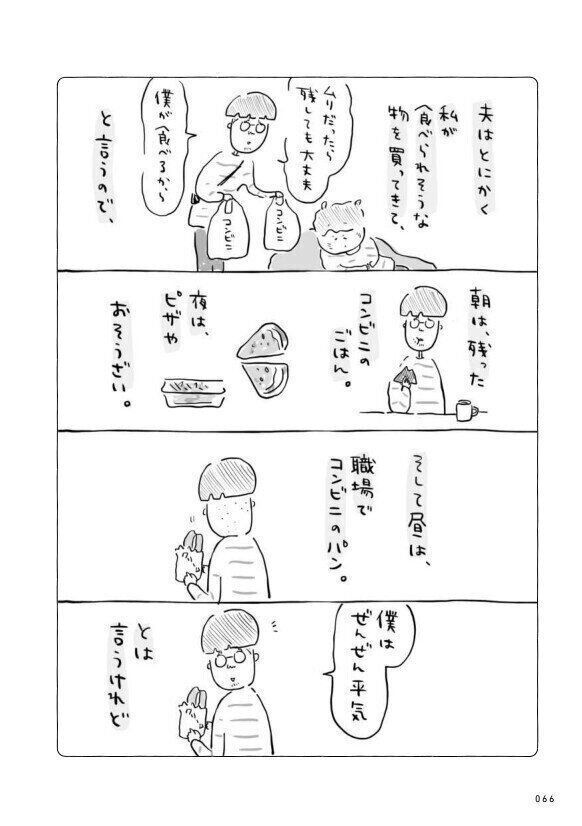 夫はとにかく
私が
食べられそうな
物を買ってきて、
ムリだったら
残しても大丈夫
僕が食べるから
コンビニ
コンビニ
と言うので、
朝は、残った
コンビニの
ごはん。
夜は、
ピザや
おそうざい。
そして昼は、
職場で
コンビニのパン。
僕は
ぜんぜん平気
とは
言うけれど
066